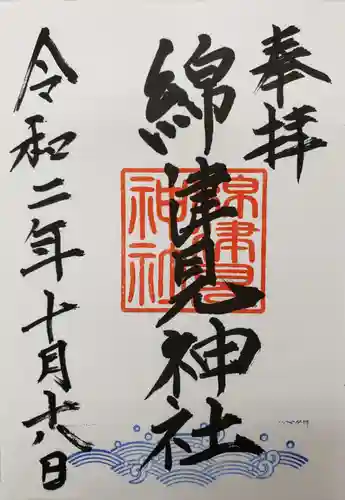 奉拝
綿津見神社
令和二年十月十八日
綿津見
神社